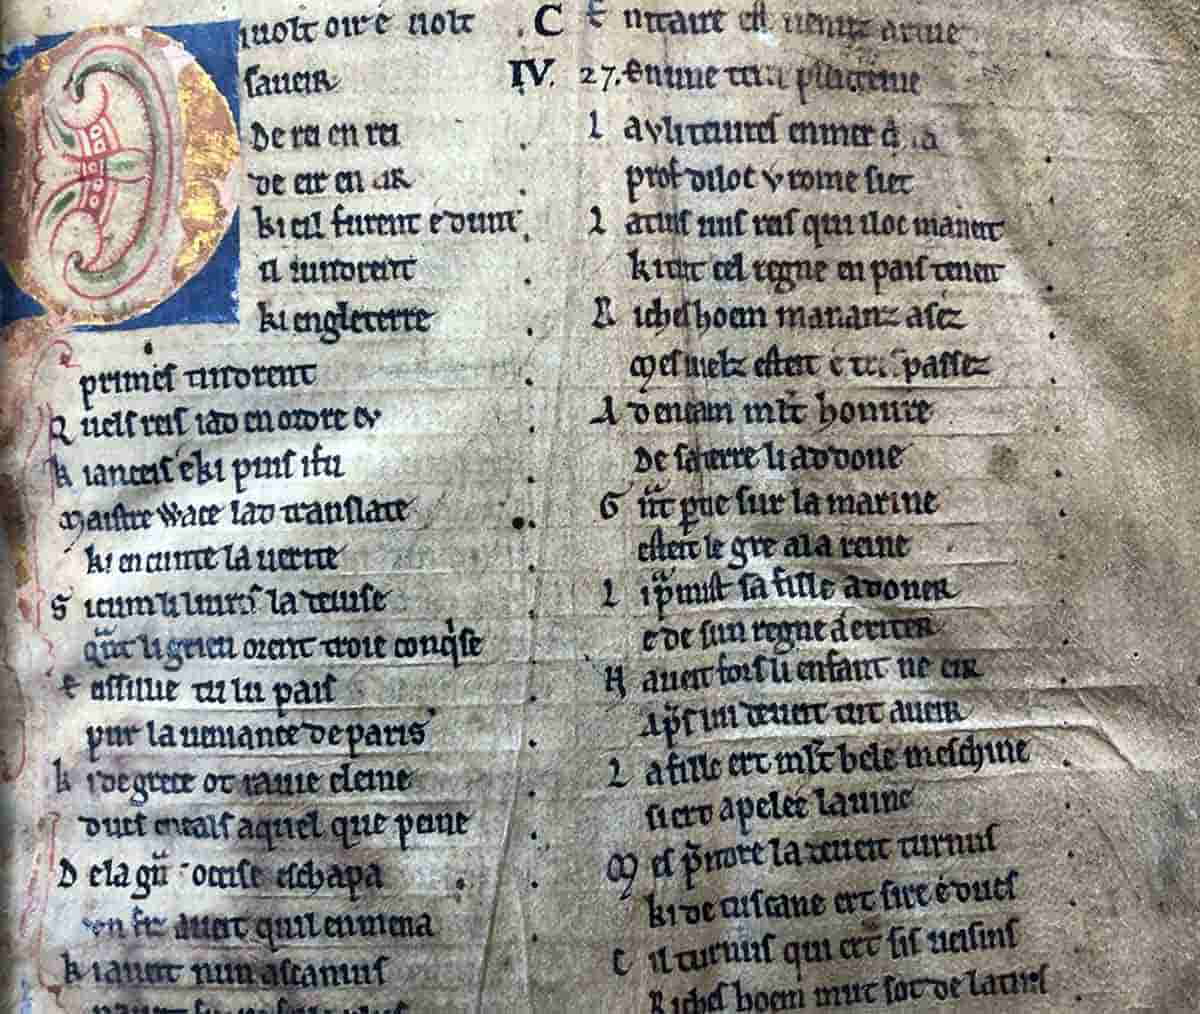 uolt oir e uolt
saueir
De rei en rei
de eir en eir
ki cil furent e dunt
il uindrent
ki engleterre
primes tindrent
Quels reis i ad en ordre eu
ki anceis e ki puis i fu
Maistre Wace lad translate
ki en cunte la uerite
Si cum li liures la deuise
quant li grieu orent troie conquise
E essillie tut lu pais
pur la ueniance de paris
ki de grece ot rauie eleine
dues eneas a quel que peine
De la gnt ocise eschapa
un fiz aueit quil en mena
ki aueit nun ascanius
C IV. 27.
E nitaire est uenuz ariue
En une terre plenteine
La v li teures en mer
pros diloc v rome siet
Latins uns reis qui iloc maneit
ki tut cel regne en pais teneit
Riches hoem mananz asez
Mes uielz esteit e trespassez
Ad eneam mlt honure
De sa terre li ad done
Gnt ptie sur la marine
esteit le gre a la reine
Li pmist sa fille a doner
e de sun regne a eriter
Naueit fors li enfant ne eir
Aps lui deueit tut aueir
La fille ert mlt bele meschine
si ert apelee lauine
Mes pmise la deueit turnus
ki de tuscane ert sire e dues
Cil turnus qui ert sis ueisins
Riches hoem mut sot de latins